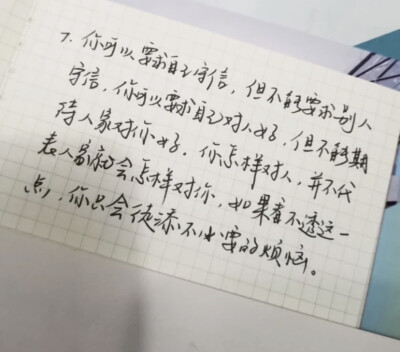 7. 你可以要求自己守信，但不能要求别人
守信，你可以要求自己对人好，但不能期
待人家对你好。你怎样对人，并不代
表人家就会怎样对你，如果看不透这一
点，你只会徒添不必要的烦恼。